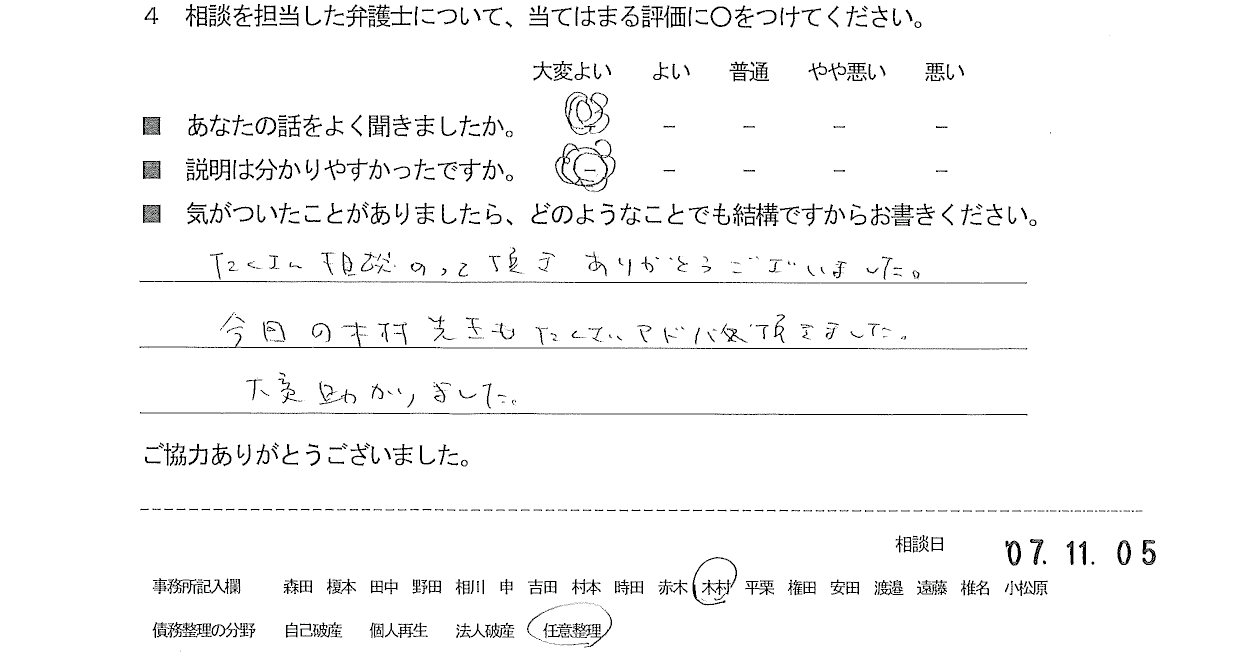 4 相談を担当した弁護士について、当てはまる評価に〇をつけてください。
大変よい よい 普通 やや悪い 悪い
■ あなたの話をよく聞きましたか。 － － － －
■ 説明は分かりやすかったですか。 － － － － －
■ 気がついたことがありましたら、どのようなことでも結構ですからお書きください。
たくさん相談のって頂き ありがとうございました。
今回の木村先生もたくさんアドバイス頂きました。
大変助かりました。
ご協力ありがとうございました。
相談日 '07.11.05
事務所記入欄 森田 榎本 田中 野田 相川 申 吉田 村本 時田 赤木 木村 平栗 権田 安田 渡邉 遠藤 椎名 小松原
債務整理の分野 自己破産 個人再生 法人破産 任意整理